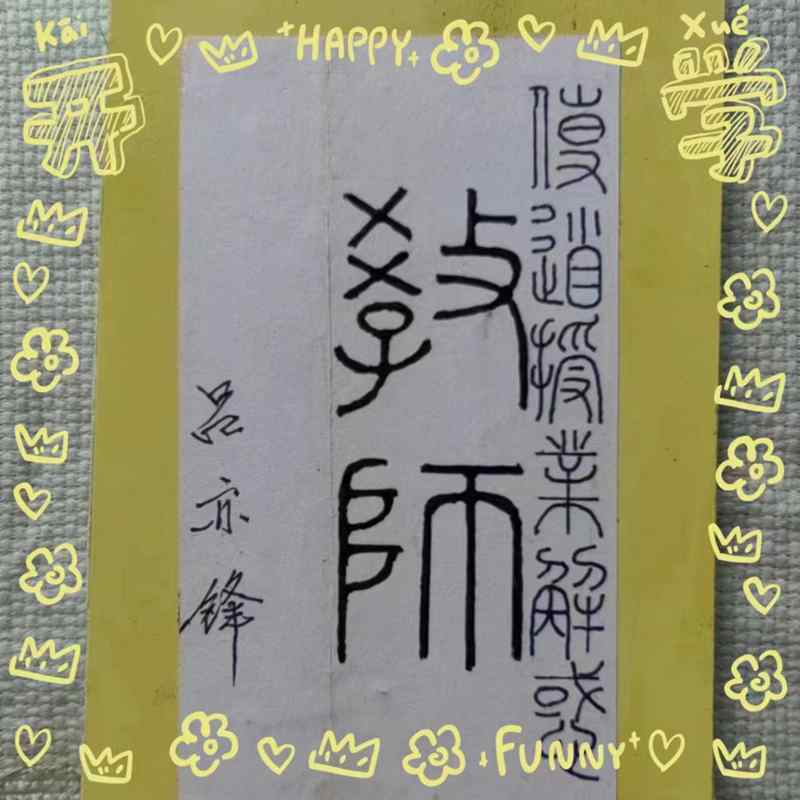 Kāi
开
HAPPY
Xué
学
傳道授業解惑
教師
吕亦锋
FUNNY